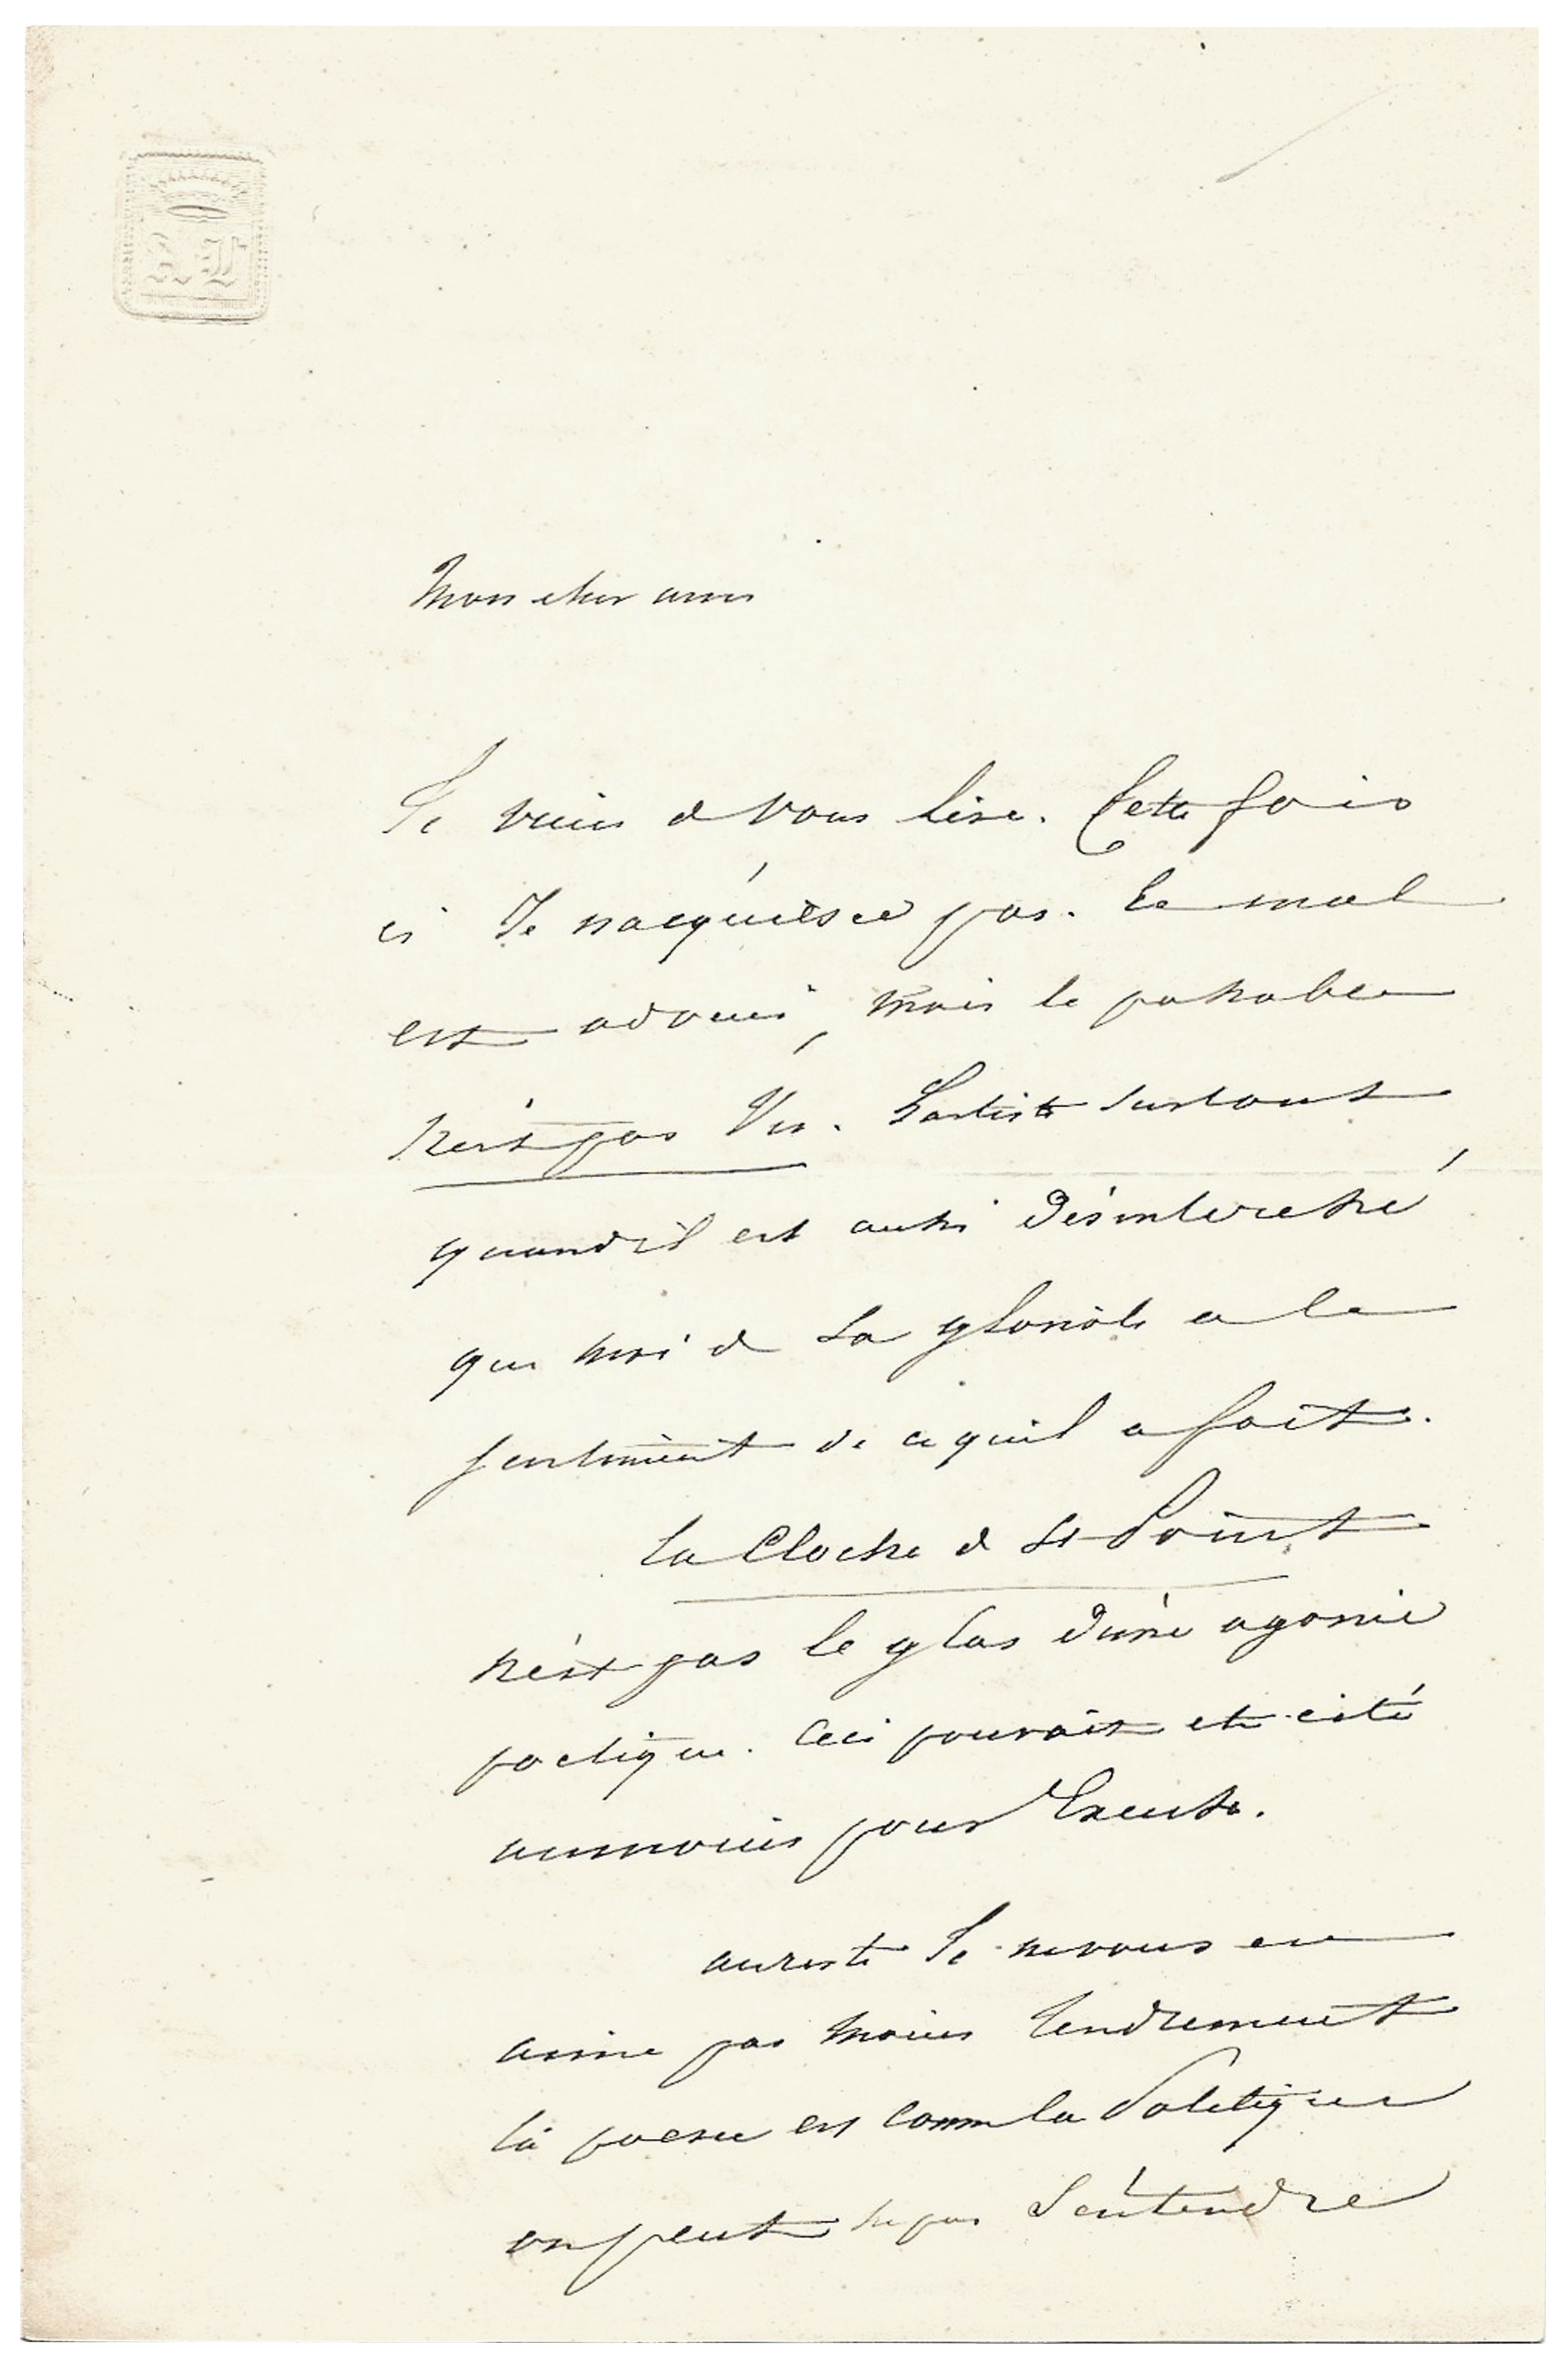 AL
Mon cher ami
Je viens de vous lire. Cette fois
ci Je n'acquiesce pas. Le mal
est adouci, mais le passable
n'est pas vu. L'artiste surtout
quand il est aussi désintéressé
que moi de sa gloriole a le
sentiment de ce qu'il a fait.
La Cloche de St Point
n'est pas le glas d'une agonie
poetique. Ceci pouvait etre cité
aumoins pour Excuse.
aureste Je ne vous en
aime pas moins tendrement
la poesie est comme la Politique
on peut ne pas s'entendre